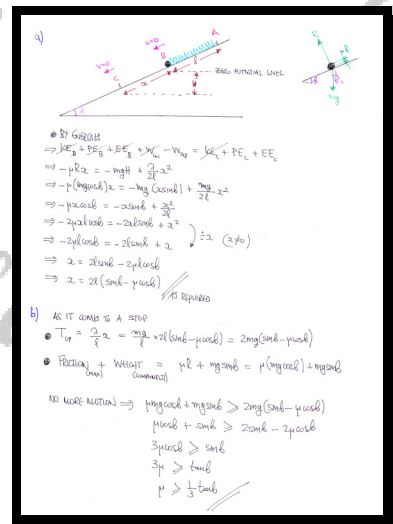 a)
u=0
u=0
A
B
l
C
x
ZERO POTENTIAL LEVEL
H
R
μR
B
mg
• BY ENERGIES
⇒ KE_B + PE_B + EE_B + W_in − W_out = KE_C + PE_C + EE_C
⇒ −μRx = −mgH + λ/2l x²
⇒ −μ(mgcosθ)x = −mg(xsinθ) + mg/2l x²
⇒ −μxcosθ = −xsinθ + x²/2l
⇒ −2μxlcosθ = −2xlsinθ + x²
⇒ −2μlcosθ = −2lsinθ + x
÷x (x≠0)
⇒ x = 2lsinθ − 2μlcosθ
⇒ x = 2l(sinθ − μcosθ)
AS REQUIRED
b) AS IT COMES TO A STOP
• T_UP = λ/l x = mg/l × 2l(sinθ−μcosθ) = 2mg(sinθ−μcosθ)
• FRICTION + WEIGHT = μR + mgsinθ = μ(mgcosθ) + mgsinθ
(MAX) (COMPONENT)
NO MORE MOTION ⇒ μmgcosθ + mgsinθ ≥ 2mg(sinθ−μcosθ)
μcosθ + sinθ ≥ 2sinθ − 2μcosθ
3μcosθ ≥ sinθ
3μ ≥ tanθ
μ ≥ 1/3 tanθ